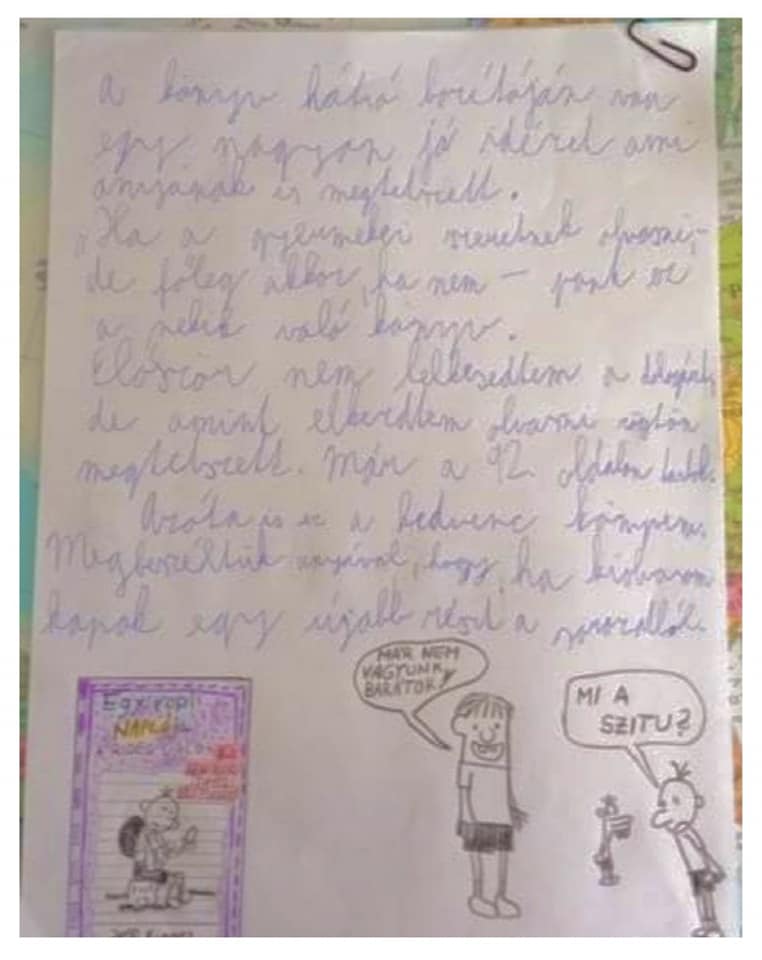 A könyv hátsó borítóján van
egy nagyon jó idézet ami
anyának is megtetszett.
„Ha a gyermekei szeretnek olvasni,-
de főleg akkor, ha nem – pont ez
a nekik való könyv.
Először nem lelkesedtem a
de amint elkezdtem olvasni rögtön
megtetszett. Már a 92. oldalon tartok.
Azóta is ez a kedvenc könyvem.
Megbeszéltük anyával, hogy, ha kiolvasom
kapok egy újabb részt a sorozatból.
MÁR NEM
VAGYUNK
BARÁTOK!
MI A
SZITU?
Egy ropi
NAPLÓJA